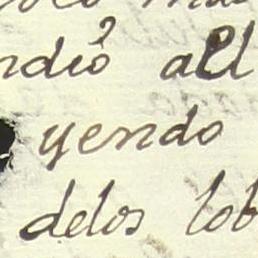 ndió all
yendo
delos lob